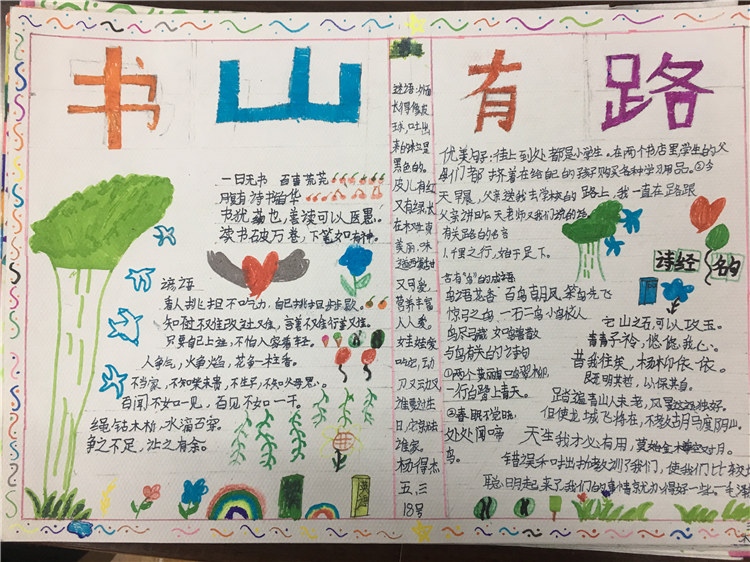 书山有路
一日无书 百事荒芜
腹有诗书气自华
书犹药也，善读可以医愚。
读书破万卷，下笔如有神。
谚语
有人挑担不吃力，自己挑担
知错不难改过难，言善不难行善难。
只要自己上进，不怕人家看轻。
人争气，火争焰，花争一柱香。
不当家，不知柴米贵，不生子，不知父母恩。
百闻不如一见，百见不如一干。
绳锯木断，水滴石穿。
争之不足，让之有余。
谜语：外面
长得像皮
球，吐出
来的籽是
黑色的。
皮儿有红
又有绿，长
在木难
美丽。味
又可爱，
营养丰富
人人爱。
吹它，动
刀又动叉
谁要过生
日，它就去
谁家。
杨得杰
五、三
18号
优美句子：街上到处都是小学生。在两个书店里，学生的父
母们都挤着在给自己的孩子购买各种学习用品。②今
天早晨，父亲送我去学校的路上，我一直在路跟
父亲讲昨天老师又我们说的
有关路的名言
1.千里之行，始于足下。
含有"鸟"的成语
鸟语花香 百鸟朝凤 笨鸟先飞
惊弓之鸟 一石二鸟 小鸟依人
与鸟有关的诗句
①两个黄鹂鸣翠柳，
一行白鹭上青天。
②春眠不觉晓，
处处闻啼
鸟。
诗经 名句
它山之石，可以攻玉。
青青子衿，悠悠我心。
昔我往矣，杨柳依依。
既明其哲，以保其身。
踏遍青山人未老，风景这边独好。
但使龙城飞将在，不教胡马度阴山。
天生我才必有用，莫使金樽空对月。
错误和挫折教训了我们，使我们比较
聪明起来了，我们的事情就办得好一些。毛泽